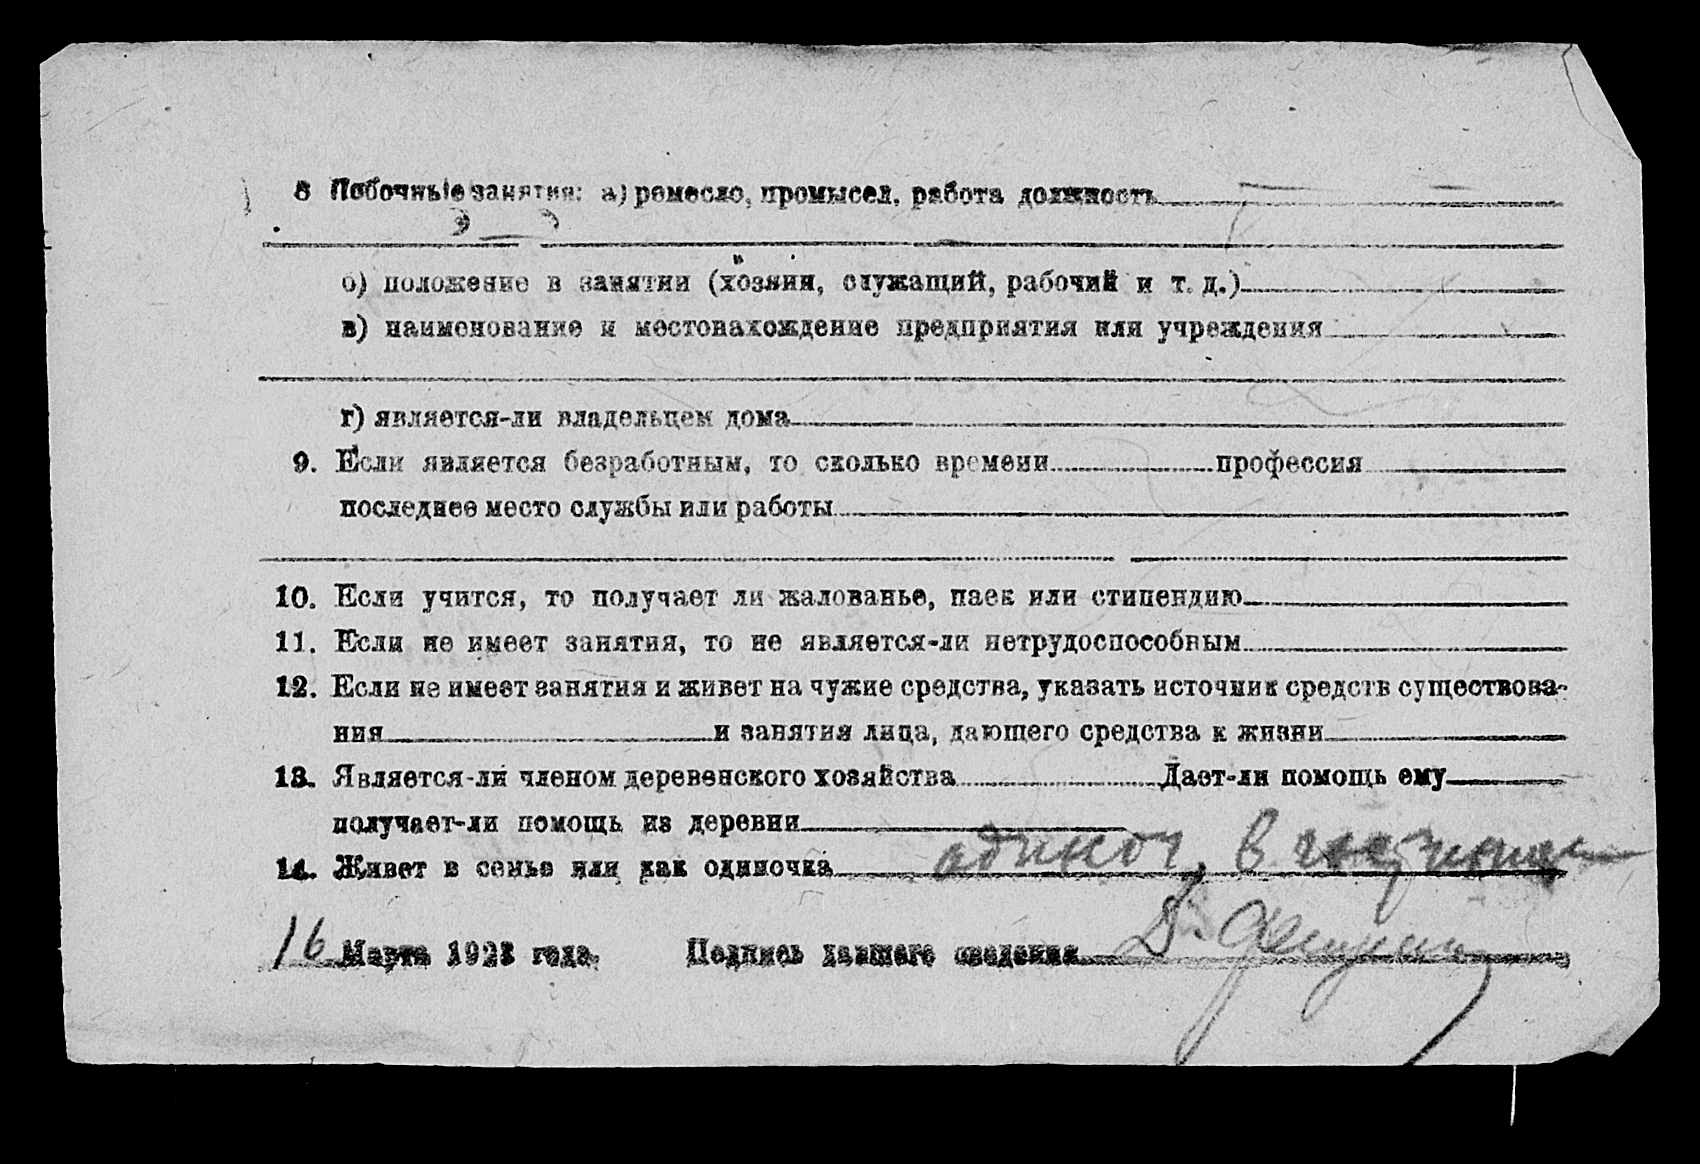 8 Побочные занятия: а) ремесло, промысел, работа должность
б) положение в занятии (хозяин, служащий, рабочий и т. д.)
в) наименование и местонахождение предприятия или учреждения
г) является-ли владельцем дома
9. Если является безработным, то сколько времени профессия
последнее место службы или работы
10. Если учится, то получает ли жалованье, паек или стипендию
11. Если не имеет занятия, то не является-ли нетрудоспособным
12. Если не имеет занятия и живет на чужие средства, указать источник средств существова-
ния и занятия лица, дающего средства к жизни
13. Является-ли членом деревенского хозяйства Дает-ли помощь ему
получает-ли помощь из деревни
14. Живет в семье или как одиночка одиноч, в
16 Марта 1923 года. Подпись давшего сведения